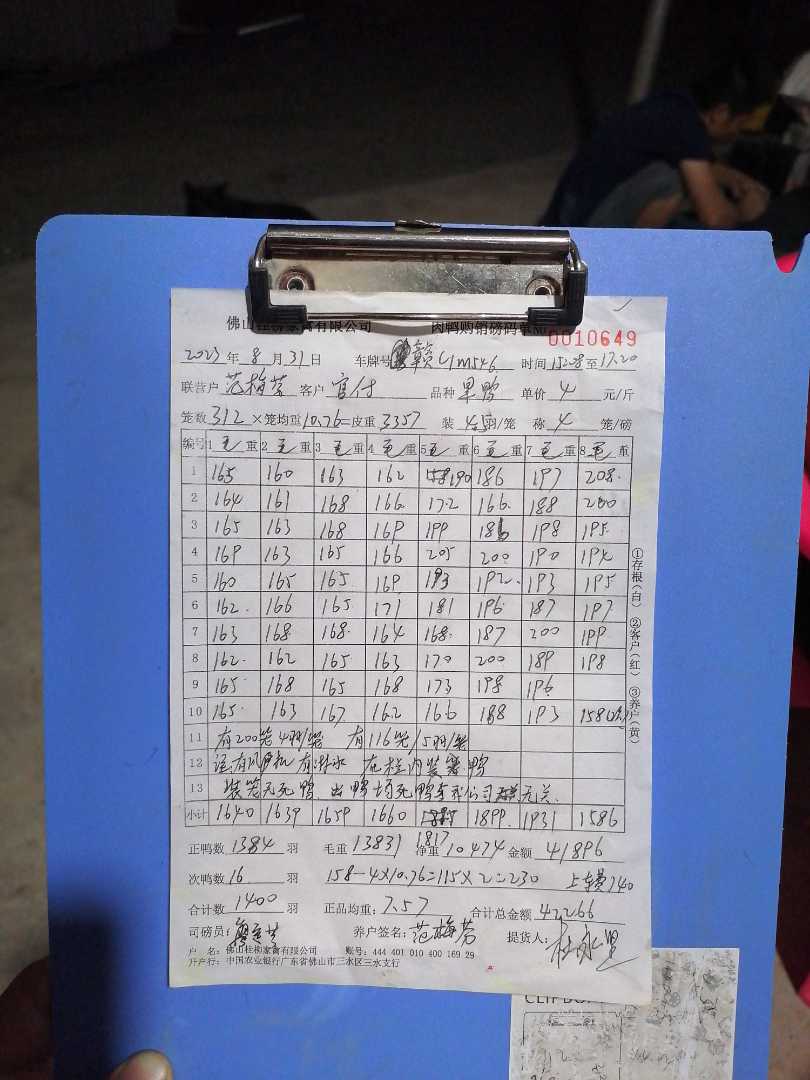 佛山桂柳家禽有限公司 肉鸭购销磅码单No 0010649
2023年8月31日 车牌号 赣C1m546 时间15:28至17:20
联营户 范梅芳 客户 官付 品种 果鸭 单价 4 元/斤
笼数312×笼均重10.76=皮重3357 装 羽/笼 称4笼/磅
编号 1毛重 2毛重 3毛重 4毛重 5毛重 6毛重 7毛重 8毛重
1 165 160 163 162 190 186 197 208
2 164 161 168 166 172 166 188 200
3 165 163 168 169 199 186 198 195
4 169 163 165 166 205 200 190 194
5 160 165 165 169 193 192 193 195
6 162 166 165 171 181 196 187 197
7 163 168 168 164 168 187 200 199
8 162 162 165 163 170 200 189 198
9 165 168 165 168 173 198 196
10 165 163 167 162 166 188 193 158
11 有200笼4羽/笼 有116笼/5羽/笼
12 有 有 水 在栏内装 鸭
13 装笼无死鸭 出鸭场死鸭 公司 无关.
小计 1640 1639 1659 1660 1817 1899 1931 1586
正鸭数1384羽 毛重13831 净重10474 金额41896
次鸭数16羽 158-4×10.76=115×2=230 上车费140
合计数1400羽 正品均重:7.57 合计总金额42266
司磅员: 养户签名:范梅芳 提货人:杜永坚
户 名:佛山桂柳家禽有限公司 账号:444 401 010 400 169 29
开户行:中国农业银行广东省佛山市三水区三水支行
①存根(白) ②客户(红) ③养户(黄)